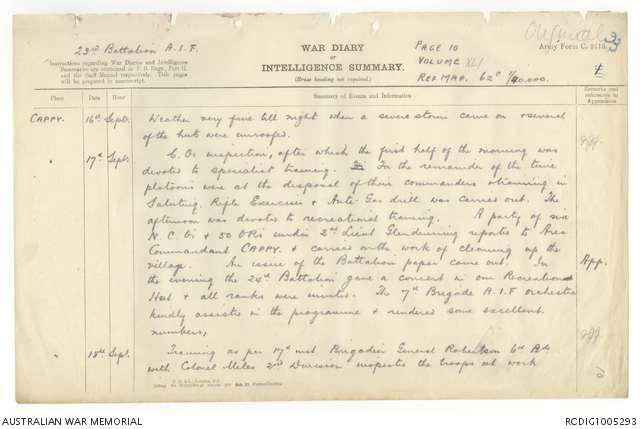 Original
23rd Battalion A.I.F.
WAR DIARY
OF
INTELLIGENCE SUMMARY.
(Erase heading not required.)
PAGE 10
VOLUME XLI
REF MAP. 62D 1/40.000.
Army Form C. 2118.
Instructions regarding War Diaries and Intelligence
Summaries are contained in F. S. Regs., Part II.
and the Staff Manual respectively. Title pages
will be prepared in manuscript.
Place Date Hour Summary of Events and Information Remarks and references to Appendices
CAPPY. 16th Sept. Weather very fine till night when a severe storm came on & several
of the huts were unroofed.
17th Sept. C.Os inspection, after which the first half of the morning was
devoted to specialist training. In the remainder of the time
platoons were at the disposal of their commanders & training in
Saluting, Rifle Exercises & Anti-Gas drill was carried out. The
afternoon was devoted to recreational training. A party of six
N.C.Os & 50 ORs under 2nd Lieut Glendinning reported to Area
Commandant CAPPY & carried on the work of cleaning up the
village. An issue of the Battalion paper came out. In App.
the evening the 24th Battalion gave a concert in our Recreation
Hut & all ranks were invited. The 7th Brigade A.I.F orchestra
kindly assisted in the programme & rendered some excellent
numbers,
18th Sept. Training as per 17th inst. Brigadier General Robertson 6th
with Colonel Miles 2nd Division inspected the troops at work
AUSTRALIAN WAR MEMORIAL
RCDIG1005293